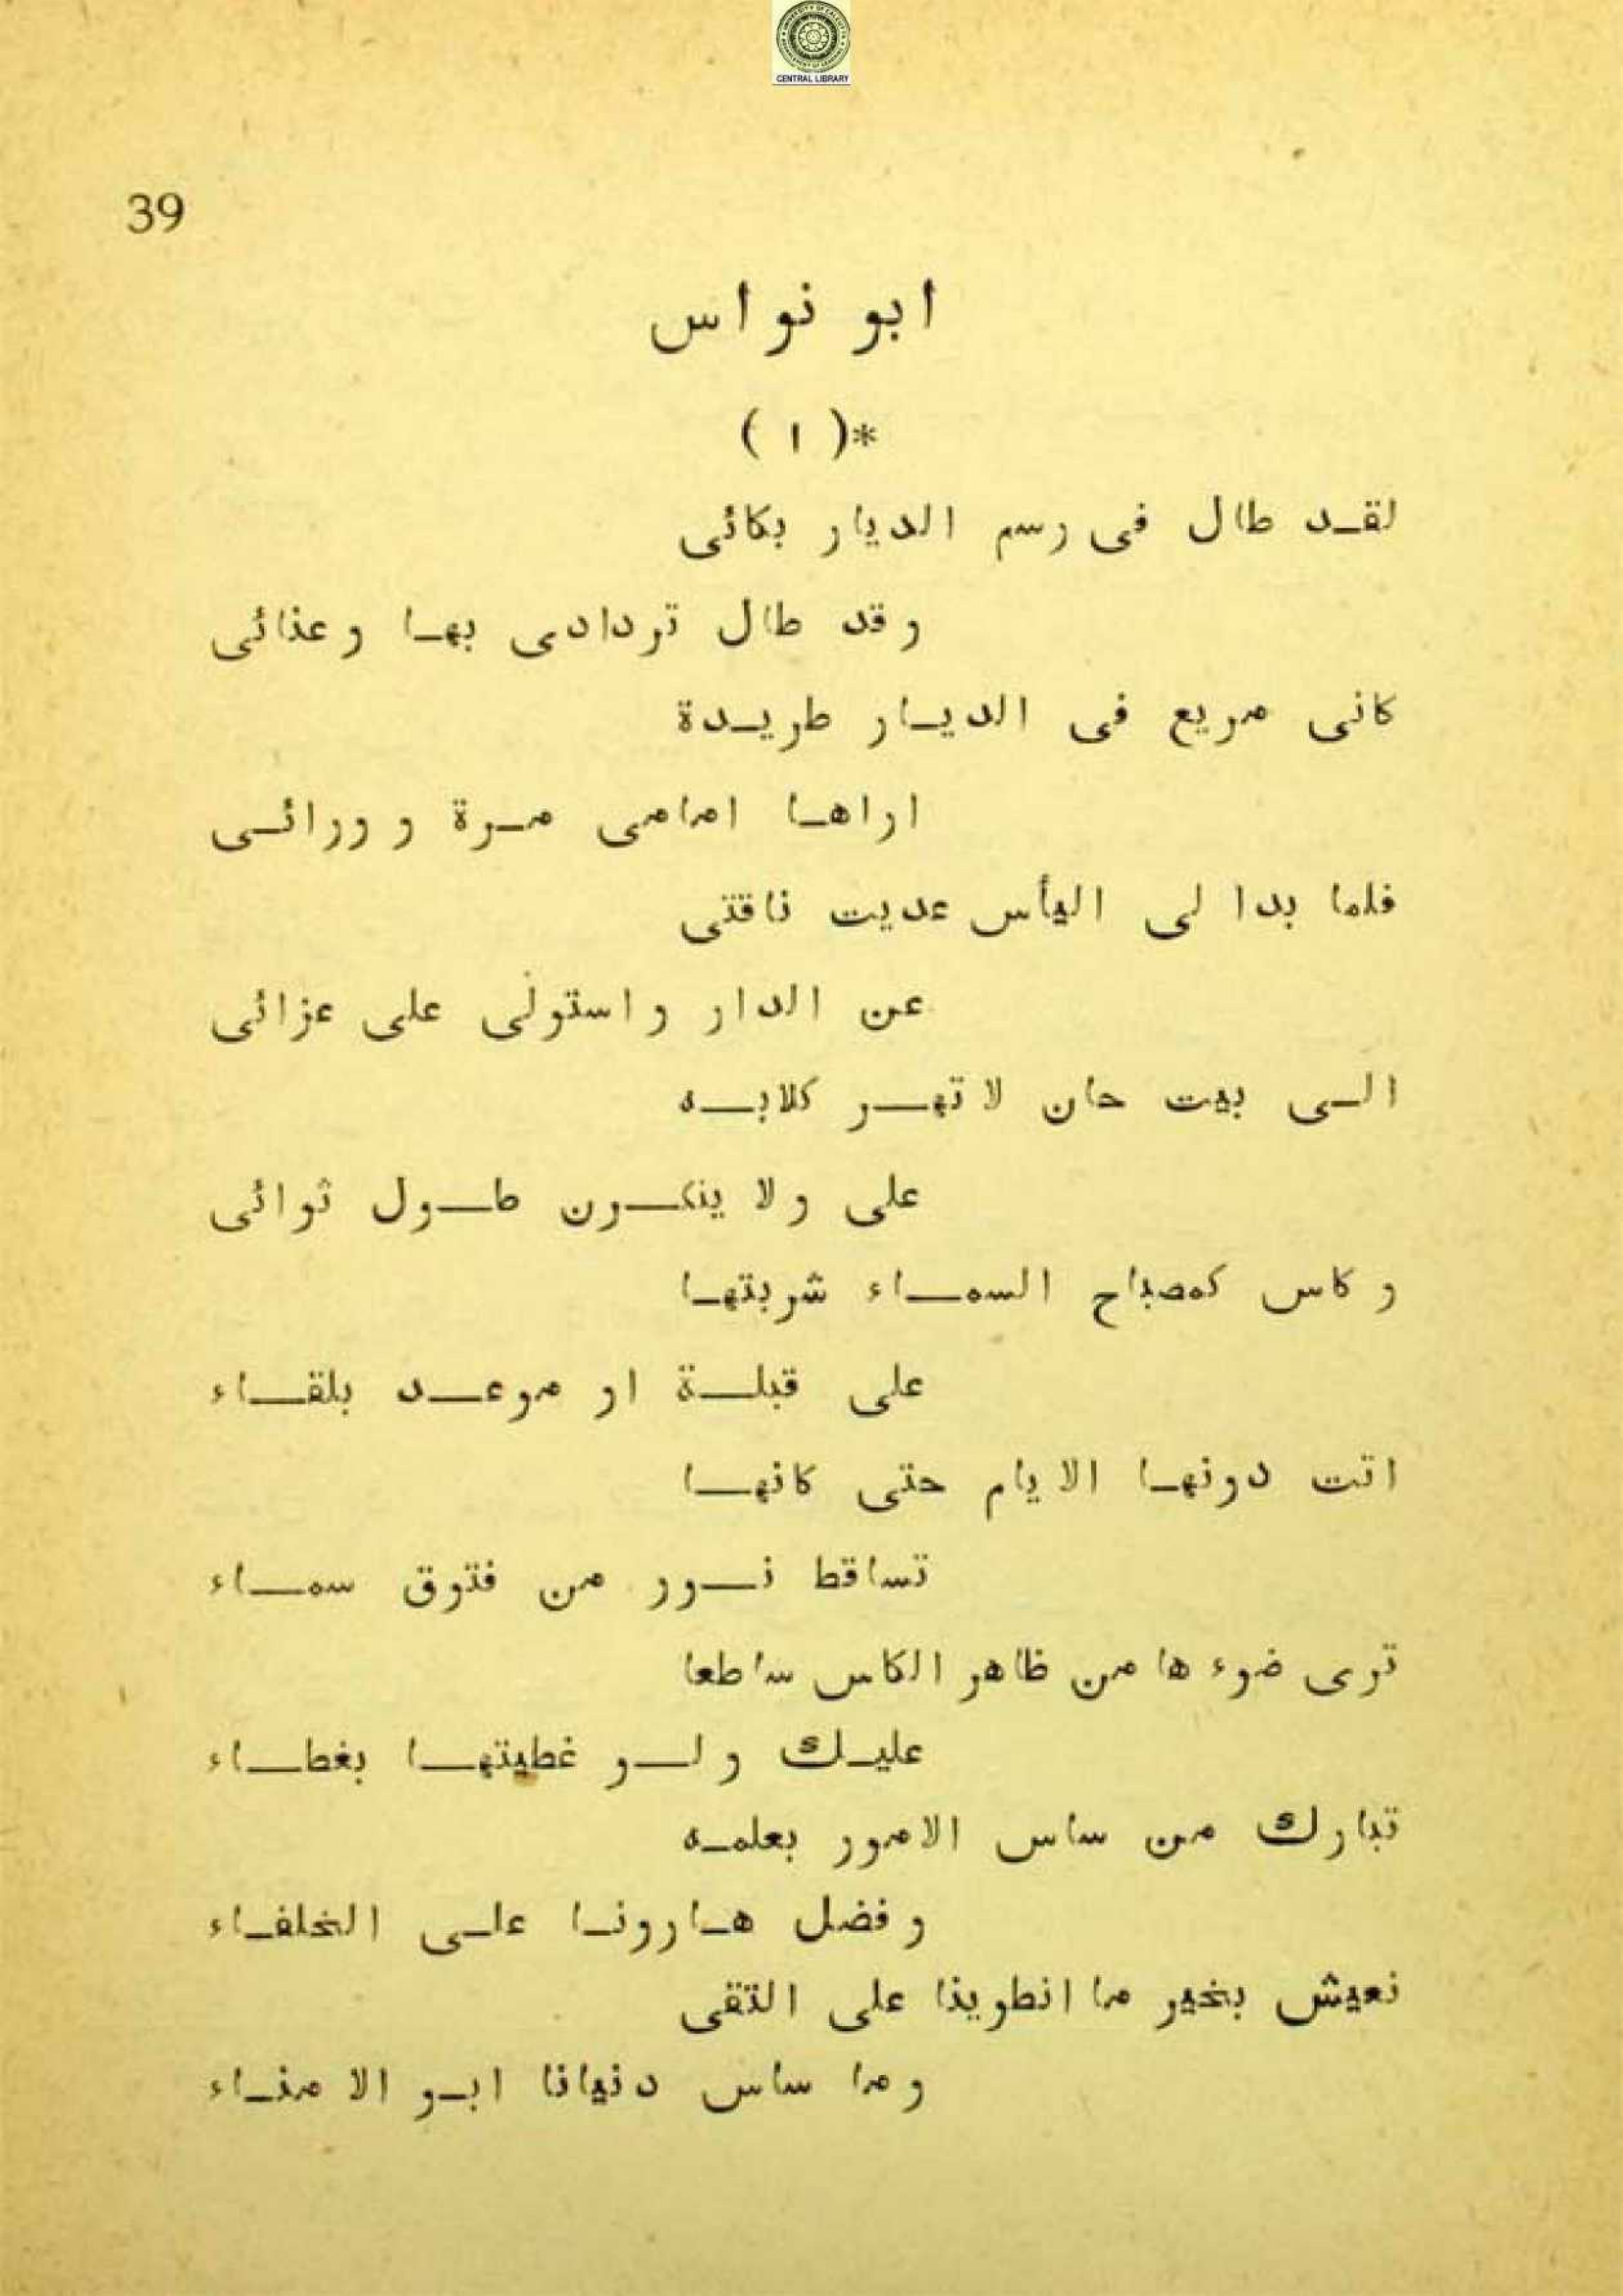 CENTRAL LIBRARY
39
ابو نواس
*( ١ )
لقد طال فى رسم الديار بكائى
و قد طال تردادى بها و عنائى
كانى مريع فى الديار طريدة
اراها امامى مرة و ورائى
فلما بدا لى اليأس عديت ناقتى
عن الدار و استولى على عزائى
الى بيت حان لا تهر كلابه
على و لا ينكرن طول ثوائى
و كاس كمصباح السماء شربتها
على قبلة او موعد بلقاء
اتت دونها الايام حتى كانها
تساقط نور من فتوق سماء
ترى ضوء ها من ظاهر الكاس ساطعا
عليك و لو غطيتها بغطاء
تبارك من ساس الامور بعلمه
و فضل هارونا على الخلفاء
نعيش بخير ما انطوينا على التقى
و ما ساس دنيانا ابو الامناء